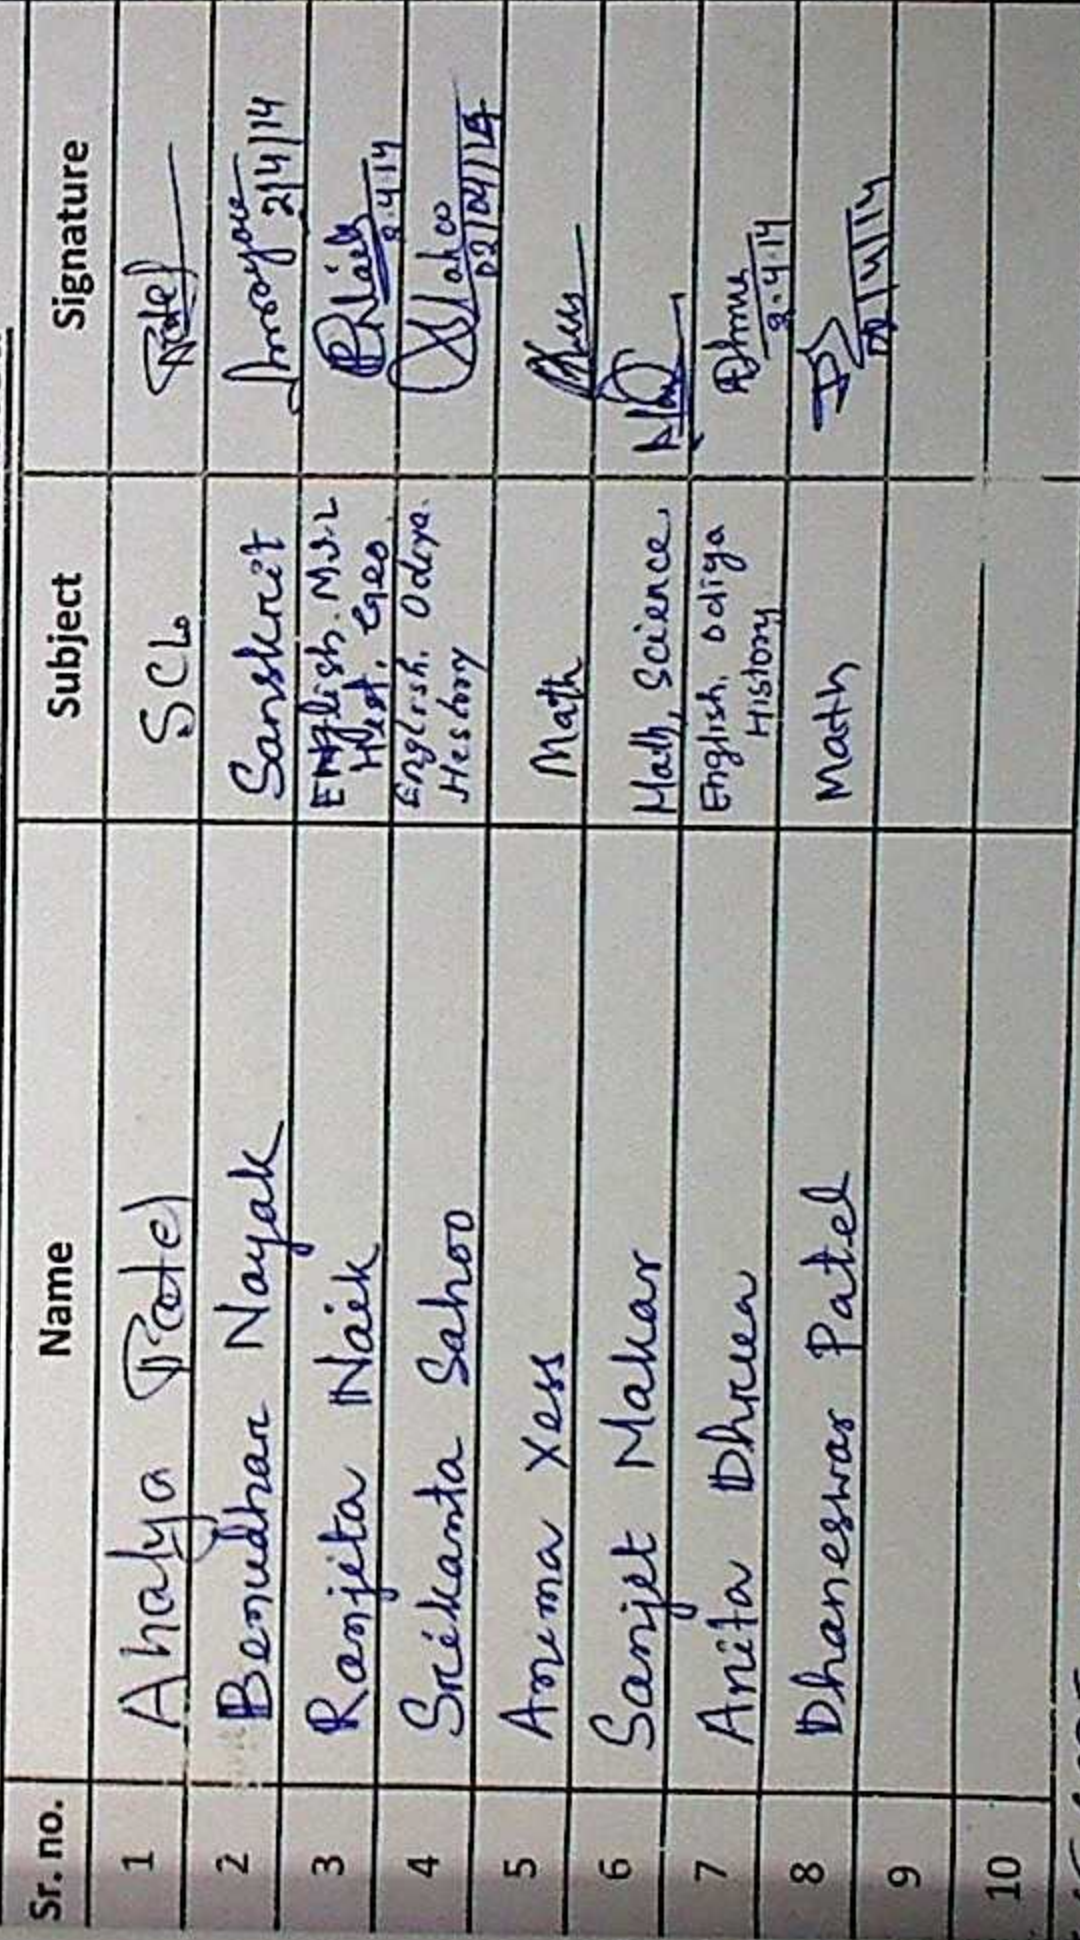 Sr. no. Name Subject Signature
1 Ahalya Patel SCL Patel
2 Benudhar Nayak Sanskrit 2/4/14
3 Ranjita Naik English. M.I.L PNaik
Hist, Geo 2.4.14
4 Srikanta Sahoo English, Odiya. Sahoo
History 02/04/14
5 Anima Xess Math AXess
6 Sanjet Makar Math, Science,
7 Anita Dhrua English, Odiya
History 2.4.14
8 Dhaneswar Patel Math 02/4/14
9
10